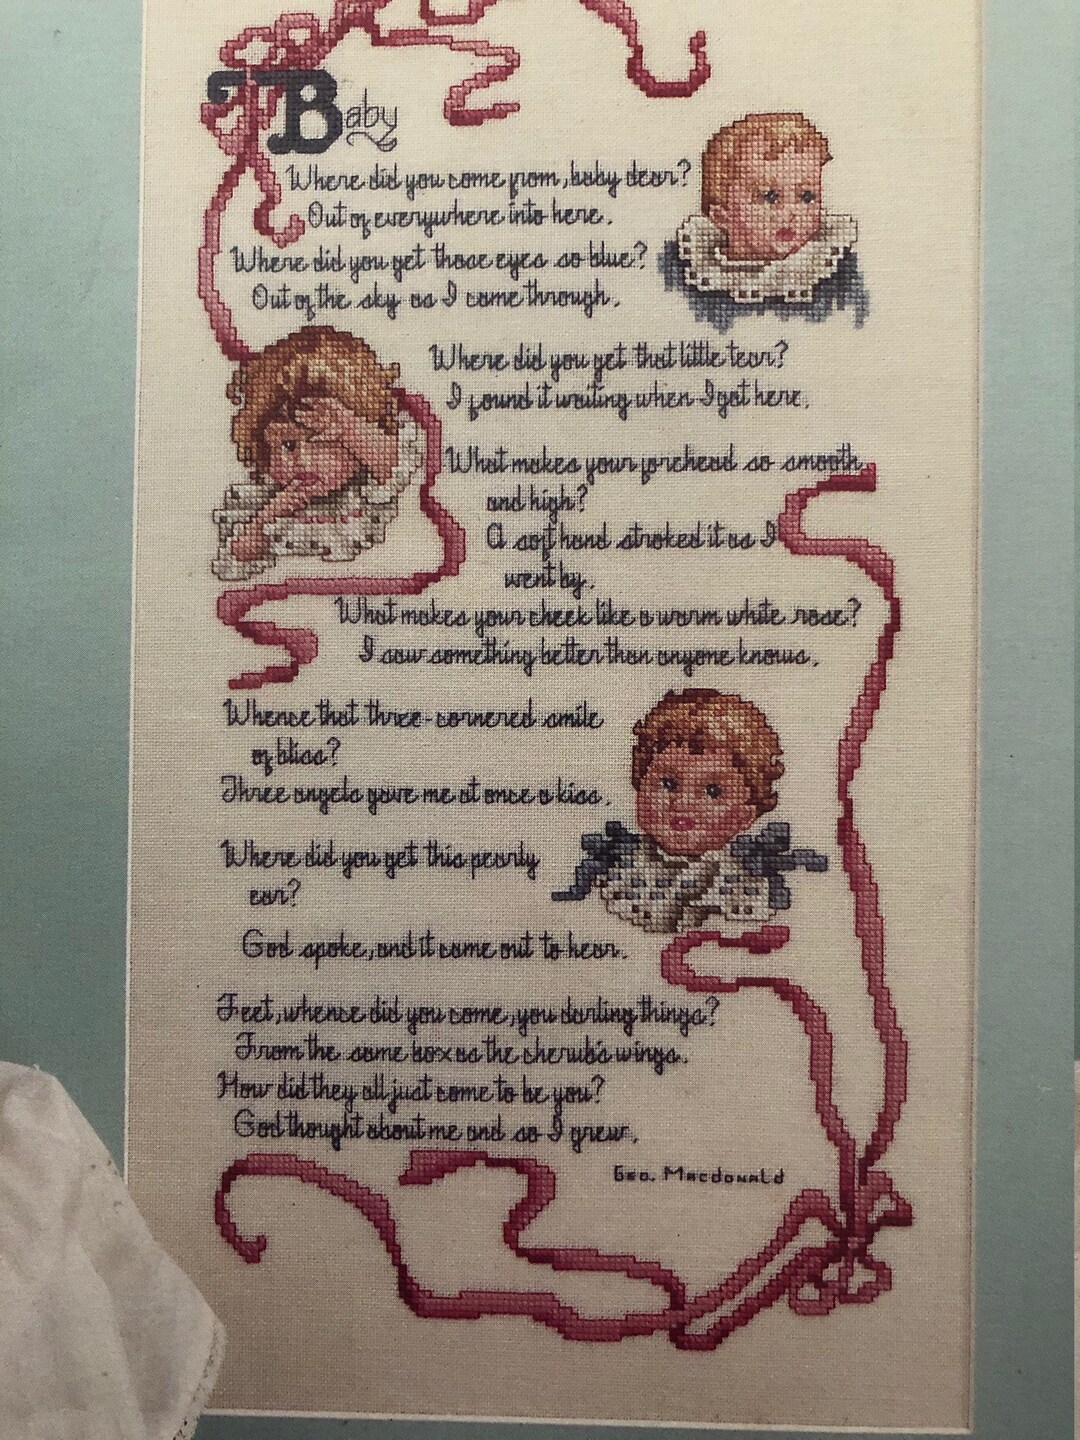 Baby
Where did you come from, baby dear?
Out of everywhere into here.
Where did you get those eyes so blue?
Out of the sky as I came through.
Where did you get that little tear?
I found it waiting when I got here.
What makes your forehead so smooth
and high?
A soft hand stroked it as I
went by.
What makes your cheek like a warm white rose?
I saw something better than anyone knows.
Whence that three-cornered smile
of bliss?
Three angels gave me at once a kiss.
Where did you get this pearly
ear?
God spoke, and it came out to hear.
Feet, whence did you come, you darling things?
From the same box as the cherub's wings.
How did they all just come to be you?
God thought about me and so I grew.
Geo. Macdonald